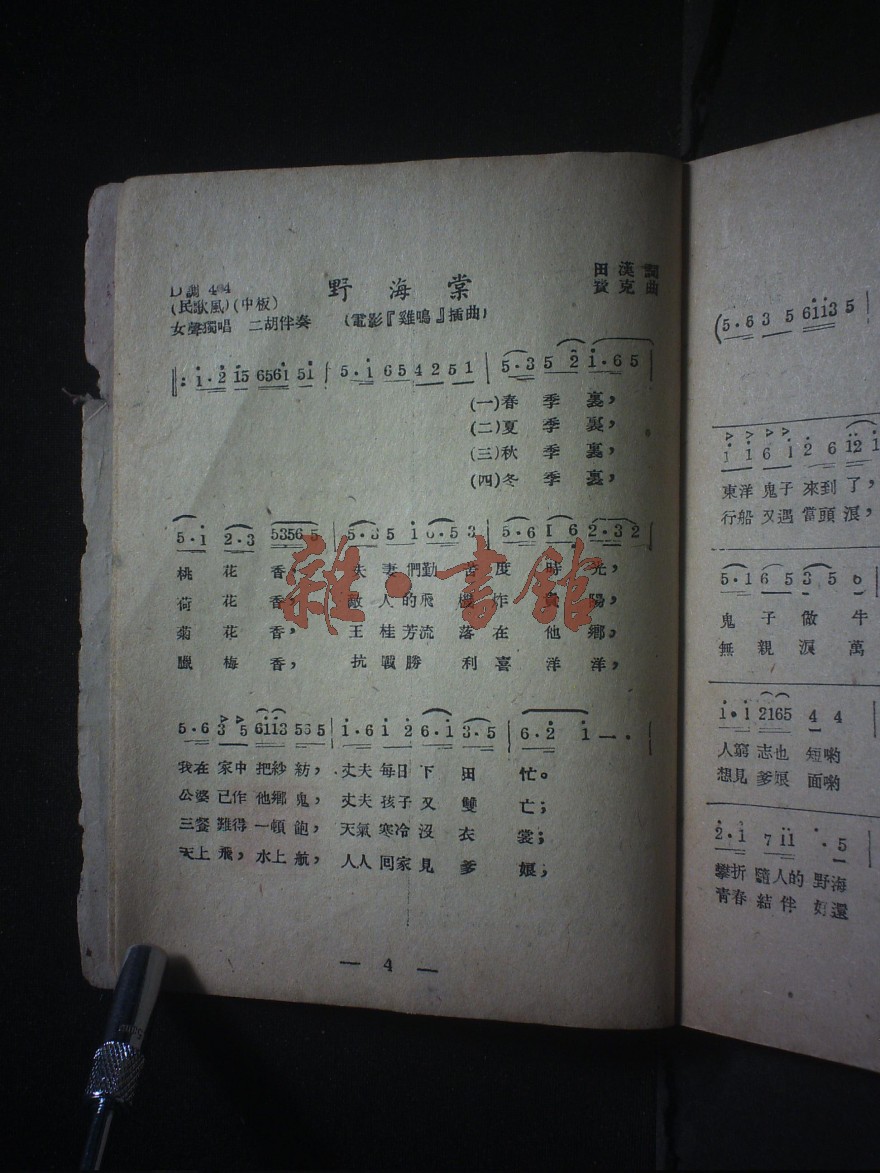 D調 4/4
野海棠
田漢詞
(民歌風)(中板)
克曲
女聲獨唱 二胡伴奏
(電影『雞鳴』插曲)
(一)春季裏,
(二)夏季裏,
(三)秋季裏,
(四)冬季裏,
桃花香, 夫妻們勤苦度時光,
荷花香, 敵人的飛機炸貴陽,
菊花香, 王桂芳流落在他鄉,
臘梅香, 抗戰勝利喜洋洋,
雜·書館
5·6 3 5 6113 565 | 1·6 1 2 6·1 3·5 | 6·2 1 — ·
我在家中把紗紡, 丈夫每日下田忙。
公婆已作他鄉鬼, 丈夫孩子又雙亡;
三餐難得一頓飽, 天氣寒冷沒衣裳;
天上飛,水上航, 人人回家見爹娘;
— 4 —
(5·6 3 5 6113 5
1 1 6 1 2 6 12 1
東洋鬼子來到了,
行船又遇當頭浪,
5·1 6 5 3 5 6
鬼子做牛
無親淚萬
1·1 2165 4 4
人窮志也短喲
想見爹娘面喲
2·1 7 11 · 5
攀折隨人的野海
青春結伴好還